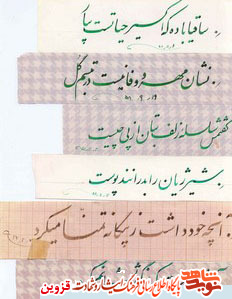 ساقیا باده که اکسیر حیاتست بیار
نشان مهر و وفا نیست در تبسم گل
گفتمش سلسله زلف بتان از پی چیست
شیر ژیان را بدرانند پوست
آنچه خود داشت ز بیگانه تمنا میکرد
نوید شاهد
پایگاه اطلاع رسانی فرهنگ ایثار و شهادت قزوین